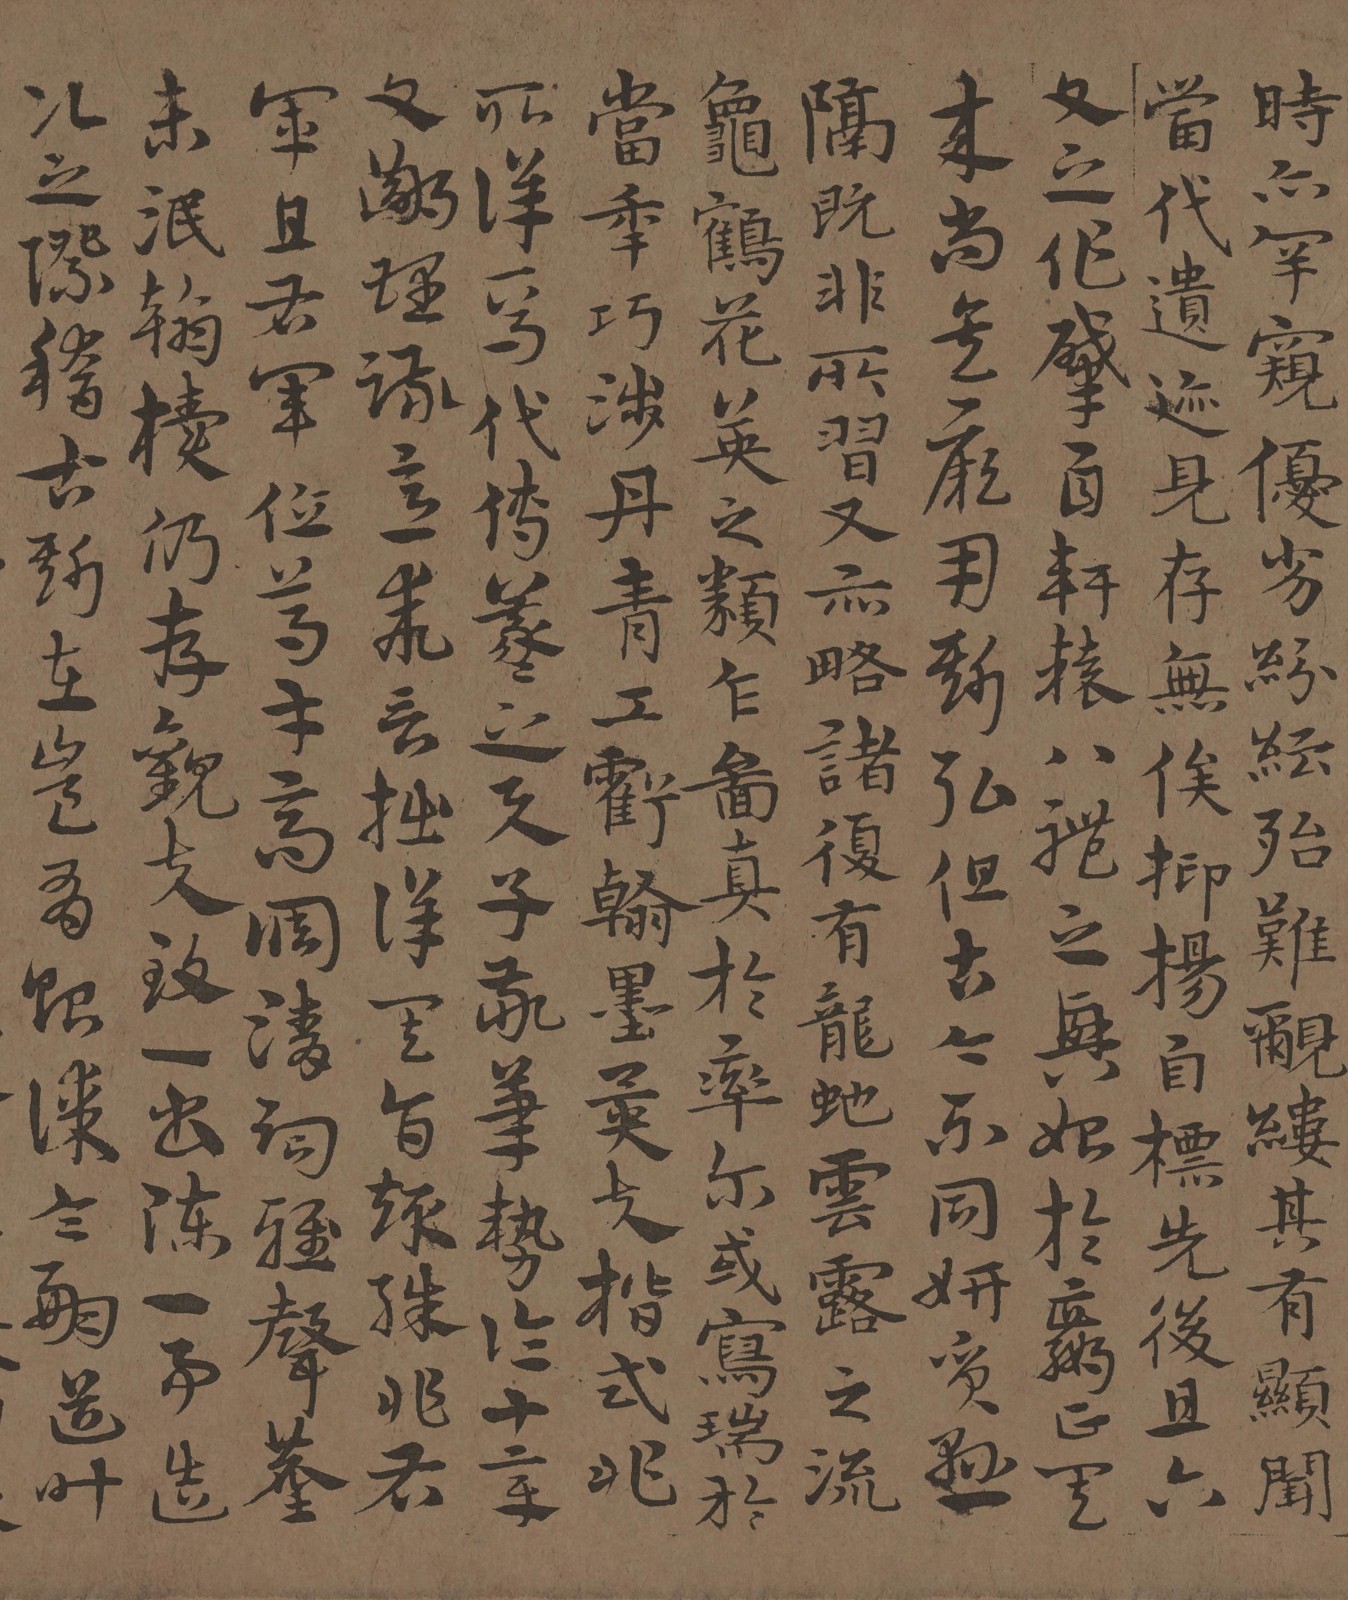 時亦罕窺優劣紛紜殆難覼縷其有顯聞
當代遺迹見存無俟抑揚自標先後且六
文之作肇自軒轅八體之興始於嬴正其
來尚矣厥用斯弘但古今不同妍質懸
隔既非所習又亦略諸復有龍蛇雲露之流
龜鶴花英之類乍圖真於率爾或寫瑞於
當年巧涉丹青工虧翰墨異夫楷式非
所詳焉代傳羲之與子敬筆勢論十章
文鄙理疎意乖言拙詳其旨趣殊非右
軍且右軍位重才高調清詞雅聲塵
未泯翰櫝仍存觀夫致一書陳一事造
次之際稽古斯在豈有貽謀令嗣道叶